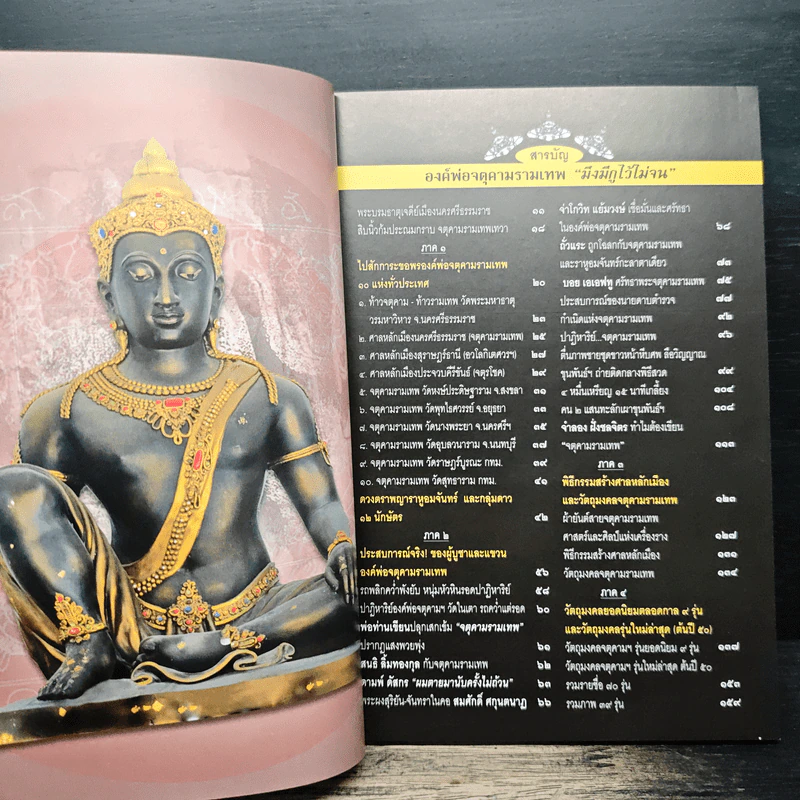 สารบัญ
องค์พ่อจตุคามรามเทพ "มึงมีกูไว้ไม่จน"
พระบรมธาตุเจดีย์เมืองนครศรีธรรมราช ๑๑
สิบนิ้วก้มประณมกราบ จตุคามรามเทพเทวา ๑๘
ภาค ๑
ไปสักการะขอพรองค์พ่อจตุคามรามเทพ
๑๐ แห่งทั่วประเทศ ๒๐
๑. ท้าวจตุคาม - ท้าวรามเทพ วัดพระมหาธาตุ
วรมหาวิหาร จ.นครศรีธรรมราช
๒. ศาลหลักเมืองนครศรีธรรมราช (จตุคามรามเทพ) ๒๕
๓. ศาลหลักเมืองสุราษฎร์ธานี (อวโลกิเตศวรฯ) ๒๗
๔. ศาลหลักเมืองประจวบคีรีขันธ์ (จตุรโชค) ๒๙
๕. จตุคามรามเทพ วัดหงษ์ประดิษฐาราม จ.สงขลา ๓๑
๖. จตุคามรามเทพ วัดพุทไธศวรรย์ จ.อยุธยา ๓๓
๗. จตุคามรามเทพ วัดนางพระยา จ.นครศรีฯ ๓๕
๘. จตุคามรามเทพ วัดอุบลวนาราม จ.นนทบุรี ๓๗
๙. จตุคามรามเทพ วัดราษฎร์บูรณะ กทม. ๓๙
๑๐. จตุคามรามเทพ วัดสุทธาราม กทม. ๔๑
ดวงตราพญาราหูอมจันทร์ และกลุ่มดาว
๑๒ นักษัตร ๔๒
ภาค ๒
ประสบการณ์จริง! ของผู้บูชาและแขวน
องค์พ่อจตุคามรามเทพ ๕๖
รถพลิกคว่ำพังยับ หนุ่มหัวหินรอดปาฏิหาริย์ ๕๘
ปาฏิหาริย์องค์พ่อจตุคามฯ วัดในเตา รถคว่ำแต่รอด ๖๐
พ่อท่านเขียนปลุกเสกเข้ม "จตุคามรามเทพ"
ปรากฏแสงพวยพุ่ง ๖๑
สนธิ ลิ้มทองกุล กับจตุคามรามเทพ ๖๒
ดามพ์ ดัสกร "ผมตายมานับครั้งไม่ถ้วน" ๖๓
พระผงสุริยัน-จันทราในคอ สมศักดิ์ ศกุนตนาฏ ๖๖
จ่าโกวิท แย้มวงษ์ เชื่อมั่นและศรัทธา
ในองค์พ่อจตุคามรามเทพ ๖๘
ถั่วแระ ถูกโฉลกกับจตุคามรามเทพ
และราหูอมจันทร์กะลาตาเดียว ๗๓
บอย เอเอฟทู ศรัทธาพระจตุคามรามเทพ ๗๕
ประสบการณ์ของนายดาบตำรวจ ๗๗
กำเนิดแห่งจตุคามรามเทพ ๙๒
ปาฏิหาริย์...จตุคามรามเทพ ๙๖
ตื่นภาพชายชุดขาวหน้าหีบศพ ลือวิญญาณ
ขุนพันธ์ฯ ถ่ายติดกลางพิธีสวด ๙๙
๔ หมื่นเหรียญ ๑๕ นาทีเกลี้ยง ๑๐๔
คน ๒ แสนทะลักเผาขุนพันธ์ฯ ๑๐๘
จำลอง ฝั่งชลจิตร ทำไมต้องเขียน
"จตุคามรามเทพ" ๑๑๓
ภาค ๓
พิธีกรรมสร้างศาลหลักเมือง
และวัตถุมงคลจตุคามรามเทพ ๑๒๓
ผ้ายันต์สายจตุคามรามเทพ
ศาสตร์และศิลป์แห่งเครื่องราง ๑๒๗
พิธีกรรมสร้างศาลหลักเมือง ๑๓๑
วัตถุมงคลจตุคามรามเทพ ๑๓๔
ภาค ๔
วัตถุมงคลยอดนิยมตลอดกาล ๙ รุ่น
และวัตถุมงคลรุ่นใหม่ล่าสุด (ต้นปี ๕๐)
วัตถุมงคลจตุคามฯ รุ่นยอดนิยม ๙ รุ่น ๑๓๗
วัตถุมงคลจตุคามฯ รุ่นใหม่ล่าสุด ต้นปี ๕๐
รวมรายชื่อ ๗๐ รุ่น ๑๕๓
รวมภาพ ๓๙ รุ่น ๑๕๙